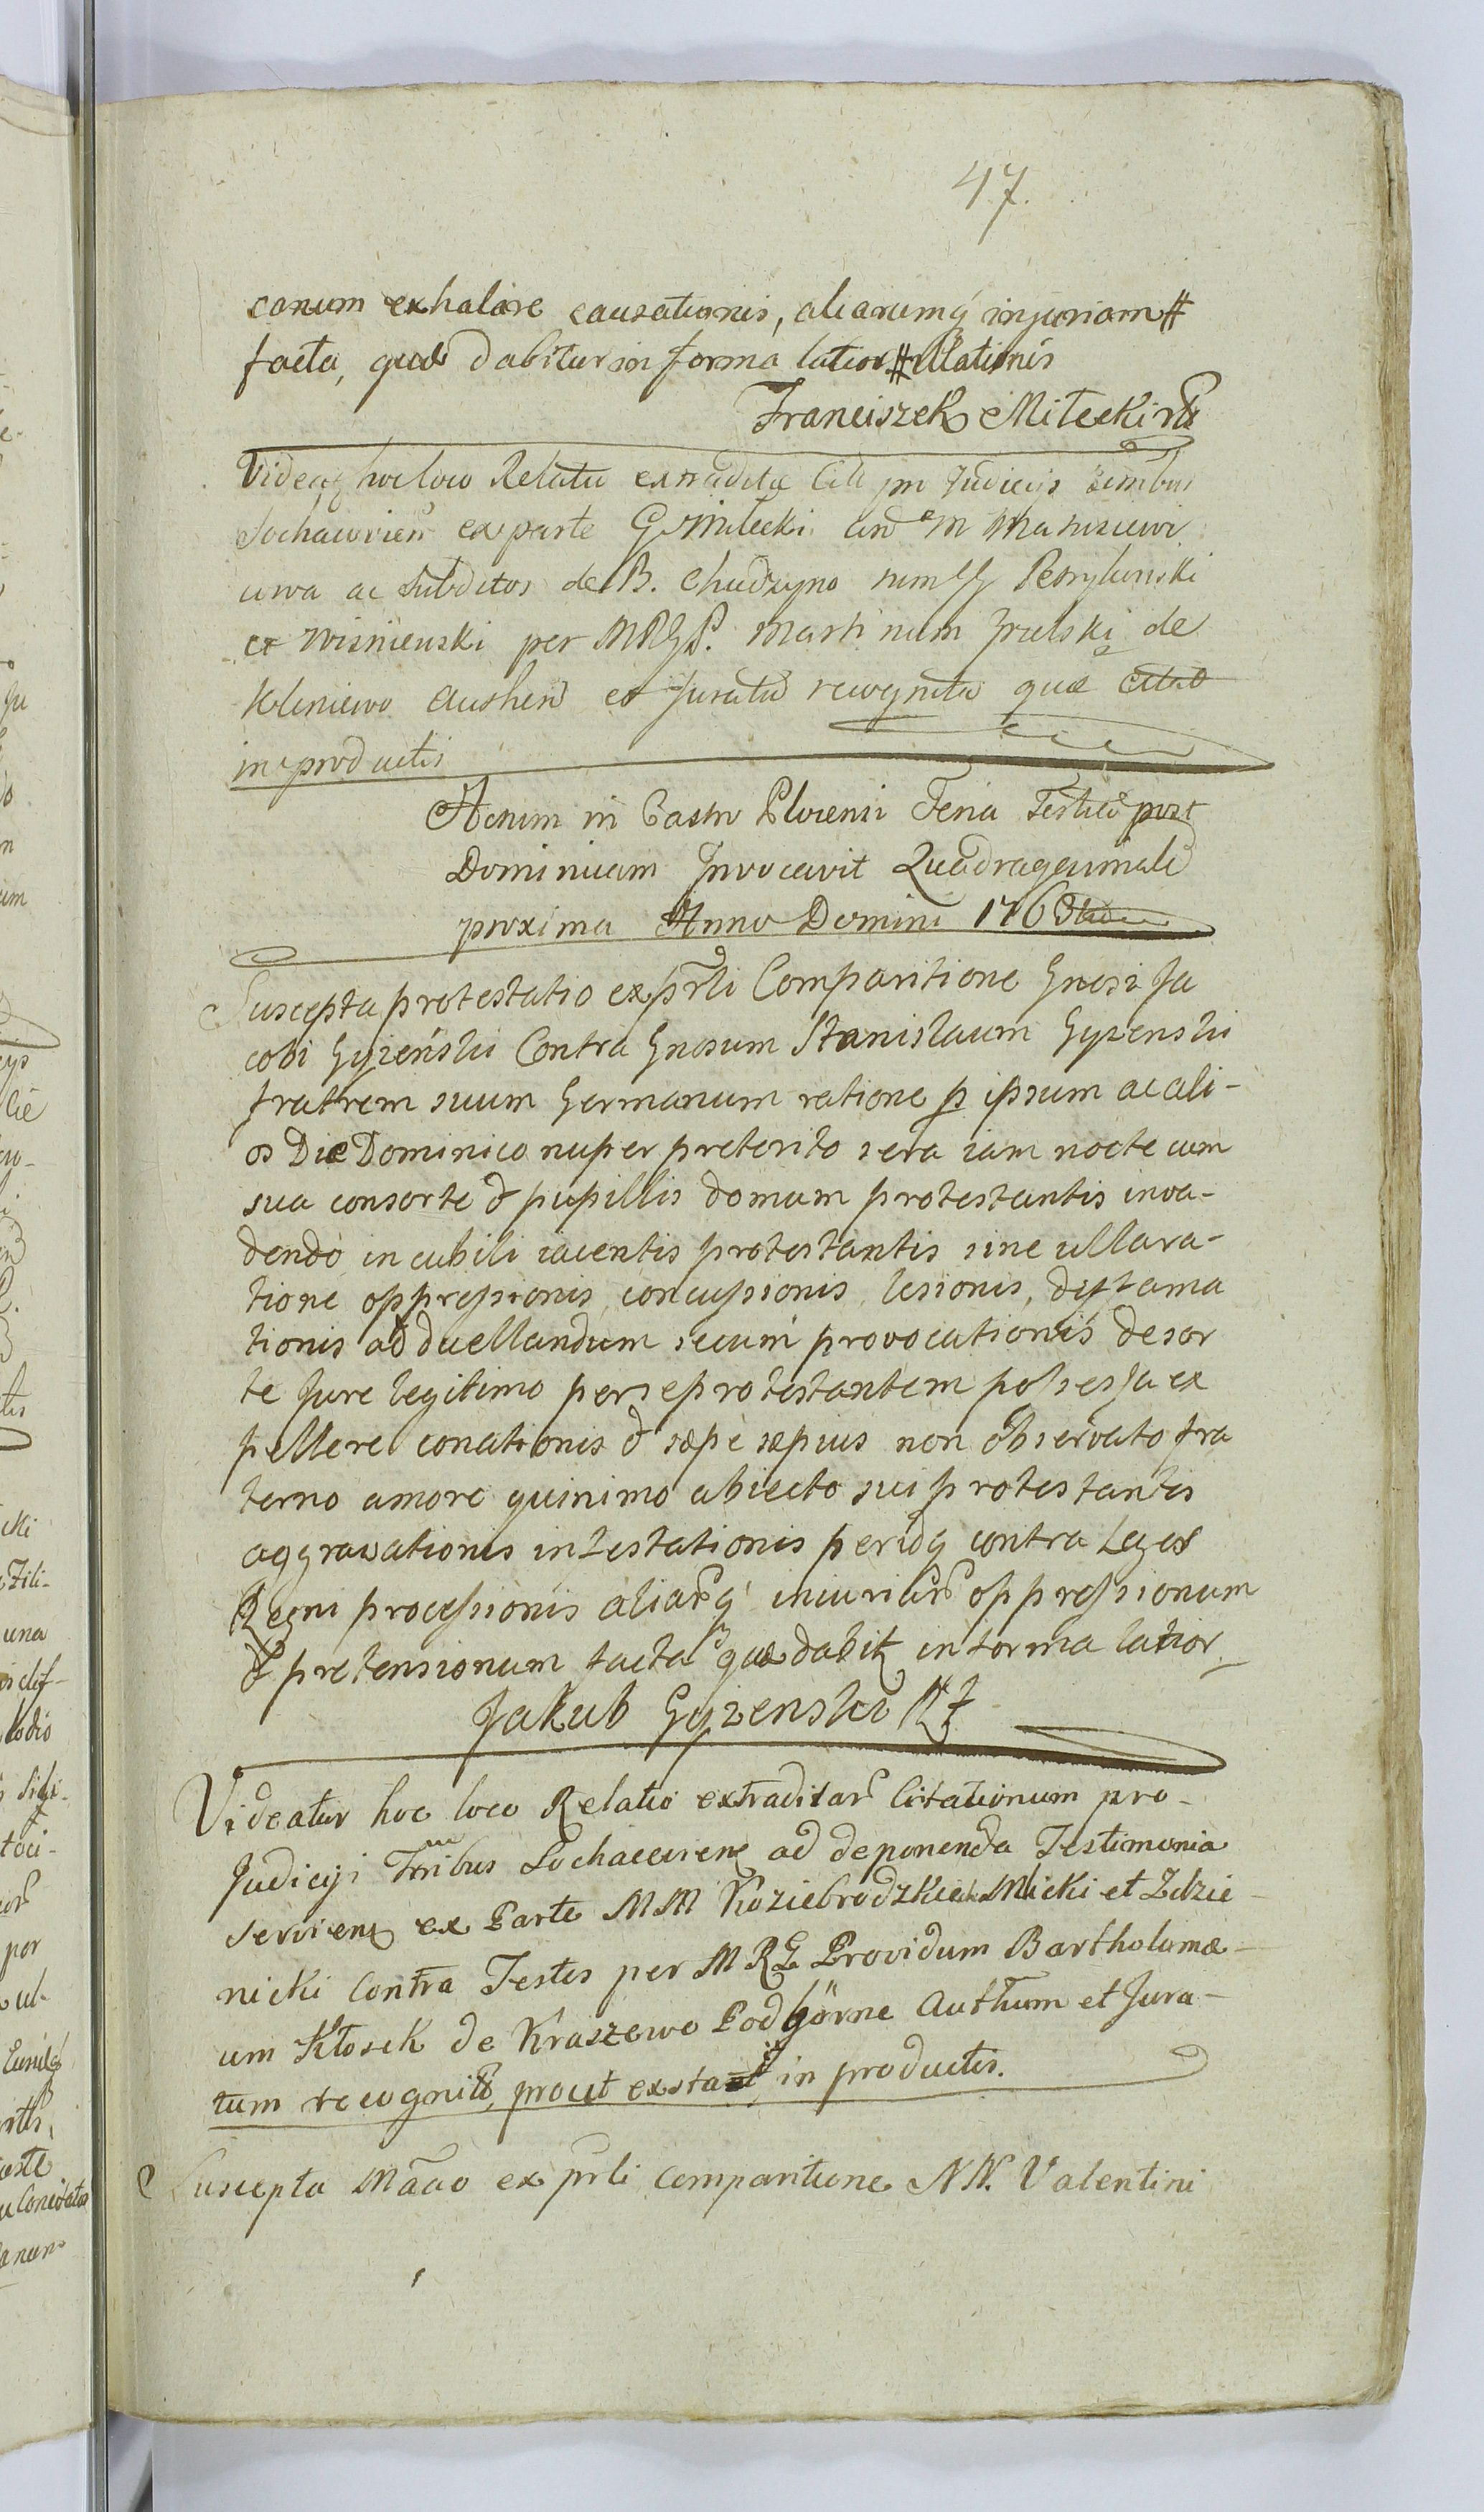 47.
canum exhalare causationis, aliarumq injuriam #
facta, quæ dabitur in forma latior # illationis
Franciszek Miłecki
Videaʒ hoc loco Relatio extradita Citt pro Judiciis
Sochacivien ex parte G Miłecki M
ac Subditos de B. Chudzyno
et Wisnienski per MRGP. Martinum de
Kleniewo Authen et Juratum recognita quæ
in productis
Actum in Castro Plocensi Feria post
Dominicam Invocavit Quadragesimale
proxima Anno Domini
Suscepta protestatio ex prsli Comparitione Gnosi Ja
cobi Gyzenski Contra Gnosum Stanislaum Gyzenski
fratrem suum Germanum ratione p ipsum ac ali-
os Die Dominico nuper preterito sera iam nocte cum
sua consorte & pupillis domum protestantis inva-
dendo in cubili iacentis protestantis sine ulla ra-
tione oppressionis, concussionis, lesionis, diffama
tionis ad duellandum secum provocationis de sor
te Jure legitimo per se protestantem possessa ex
pellere conationis & sæpe sæpius non observato fra
terno amore quinimo abiecto sui protestantis
aggravationis infestationis peridq contra Leges
Regni processionis aliarq iniuriar oppressionum
& pretensionum facta quæ dabitʒ in forma latior
Jakub Gyzenski
Videatur hoc loco Relatio extraditar Citationum pro-
Judicyi Trribus Sochacevien ad deponenda Testimonia
servien ex Parte MM Koziebrodzkie Micki et Zdzie-
nicki Contra Testes per MRG Providum Bartholomæ-
um Kłosek de Kraszewo Podgórne Authum et Jura-
tum recognita, prout exstant in productis.
Suscepta Maãao ex prli comparitione NN. Valentini